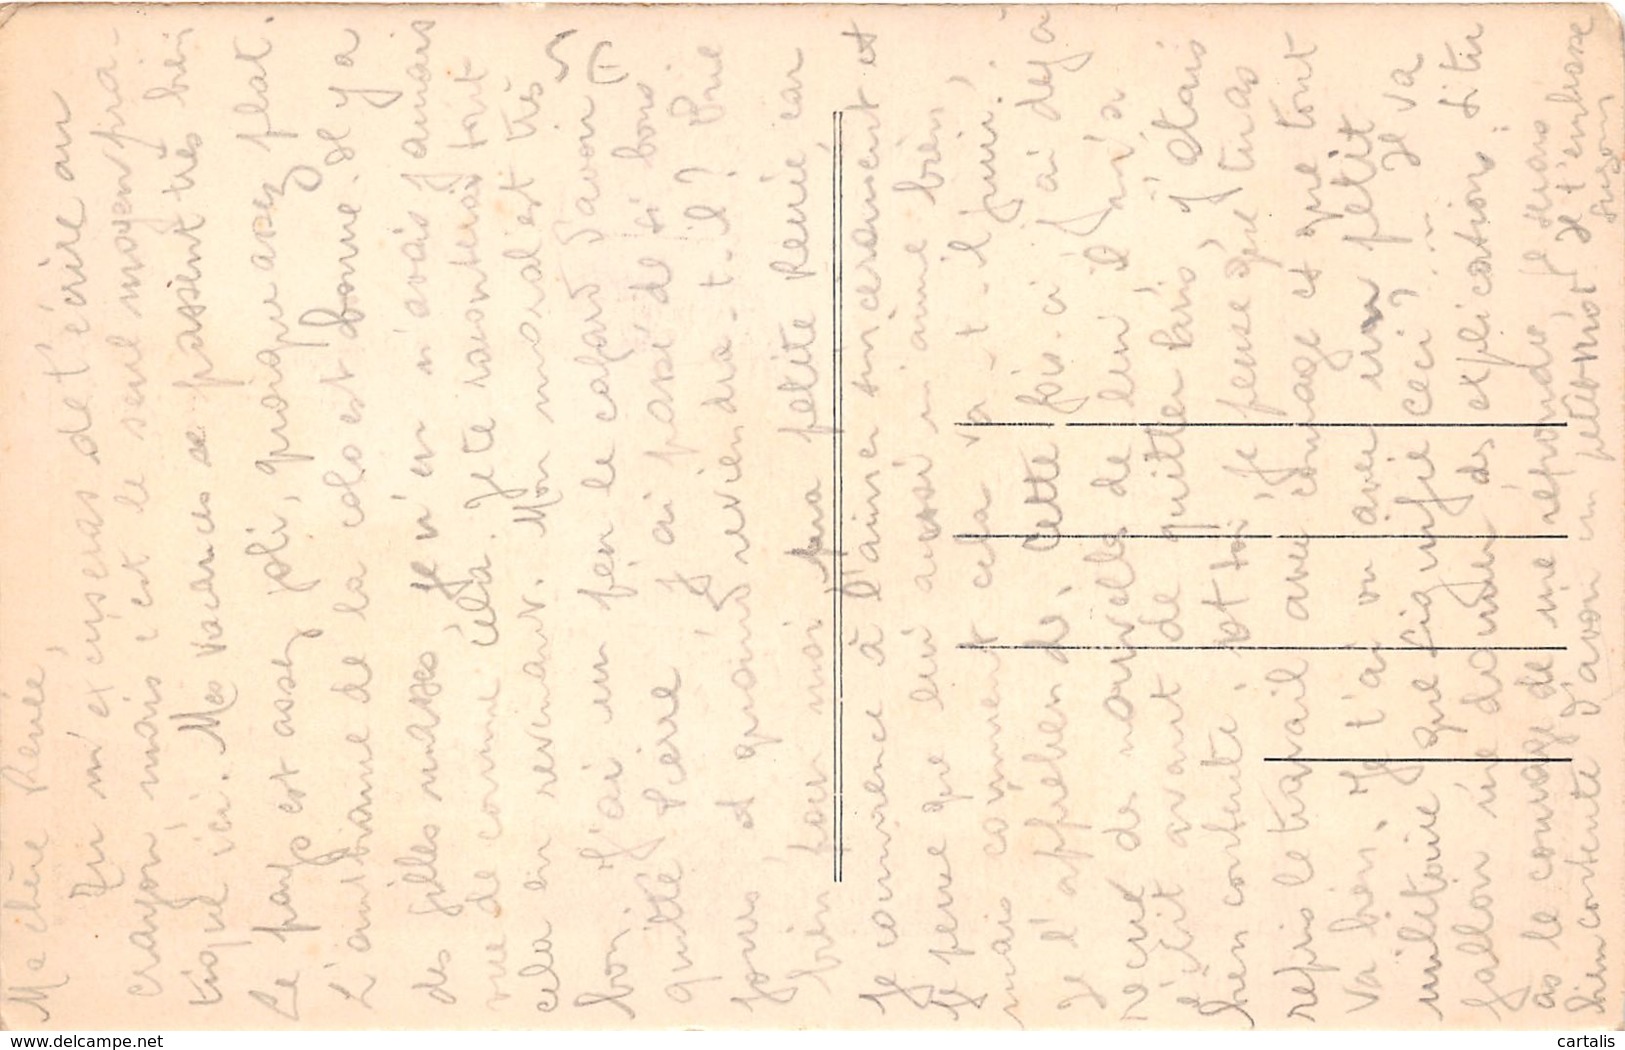 Ma chère Renée,
Tu m'excuseras de t'écrire au
crayon mais c'est le seul moyen pra-
tique ici. Mes vacances se passent très bien
Le pays est assez joli, quoique assez plat.
L'ambiance de la colo est bonne. Il y a
des filles masses je n'en n'avais jamais
vue de comme cela. Je te raconterai tout
cela en revenant. Mon moral est très
bon. J'ai un peu le cafard d'avoir
quitté Pierre j'ai passé de si bons
jours, et quand reviendra-t-il? Prie
bien pour moi ma petite Renée car
je commence à l'aimer sincèrement et
je pense que lui aussi m'aime bien
mais comment cela va-t-il finir.
Je l'appréhende. Cette fois-ci j'ai déjà
reçue de nouvelles de lui il m'a
écrit avant de quitter Paris, j'étais
bien contente. Et toi je pense que tu as
repris le travail avec courage et que tout
va bien. Je t'ai vu avec un petit
militaire que signifie ceci? ... Je va
falloir me donner des explications. Si tu
as le courage de me répondre, je serais
bien contente d'avoir un petit mot. Je t'embrasse
Suzon
delcampe.net
cartalis